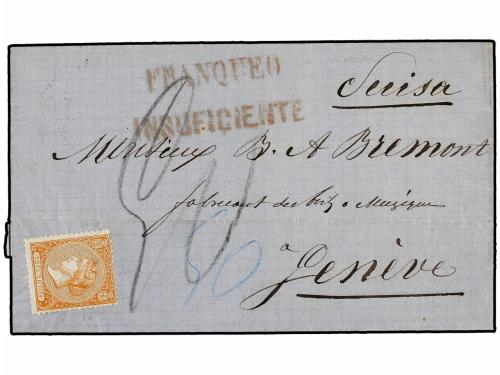 FRANQUEO
INSUFICIENTE
Suisa
Monsieur B. A Bremont
fabricant de
Musique
à
Genève